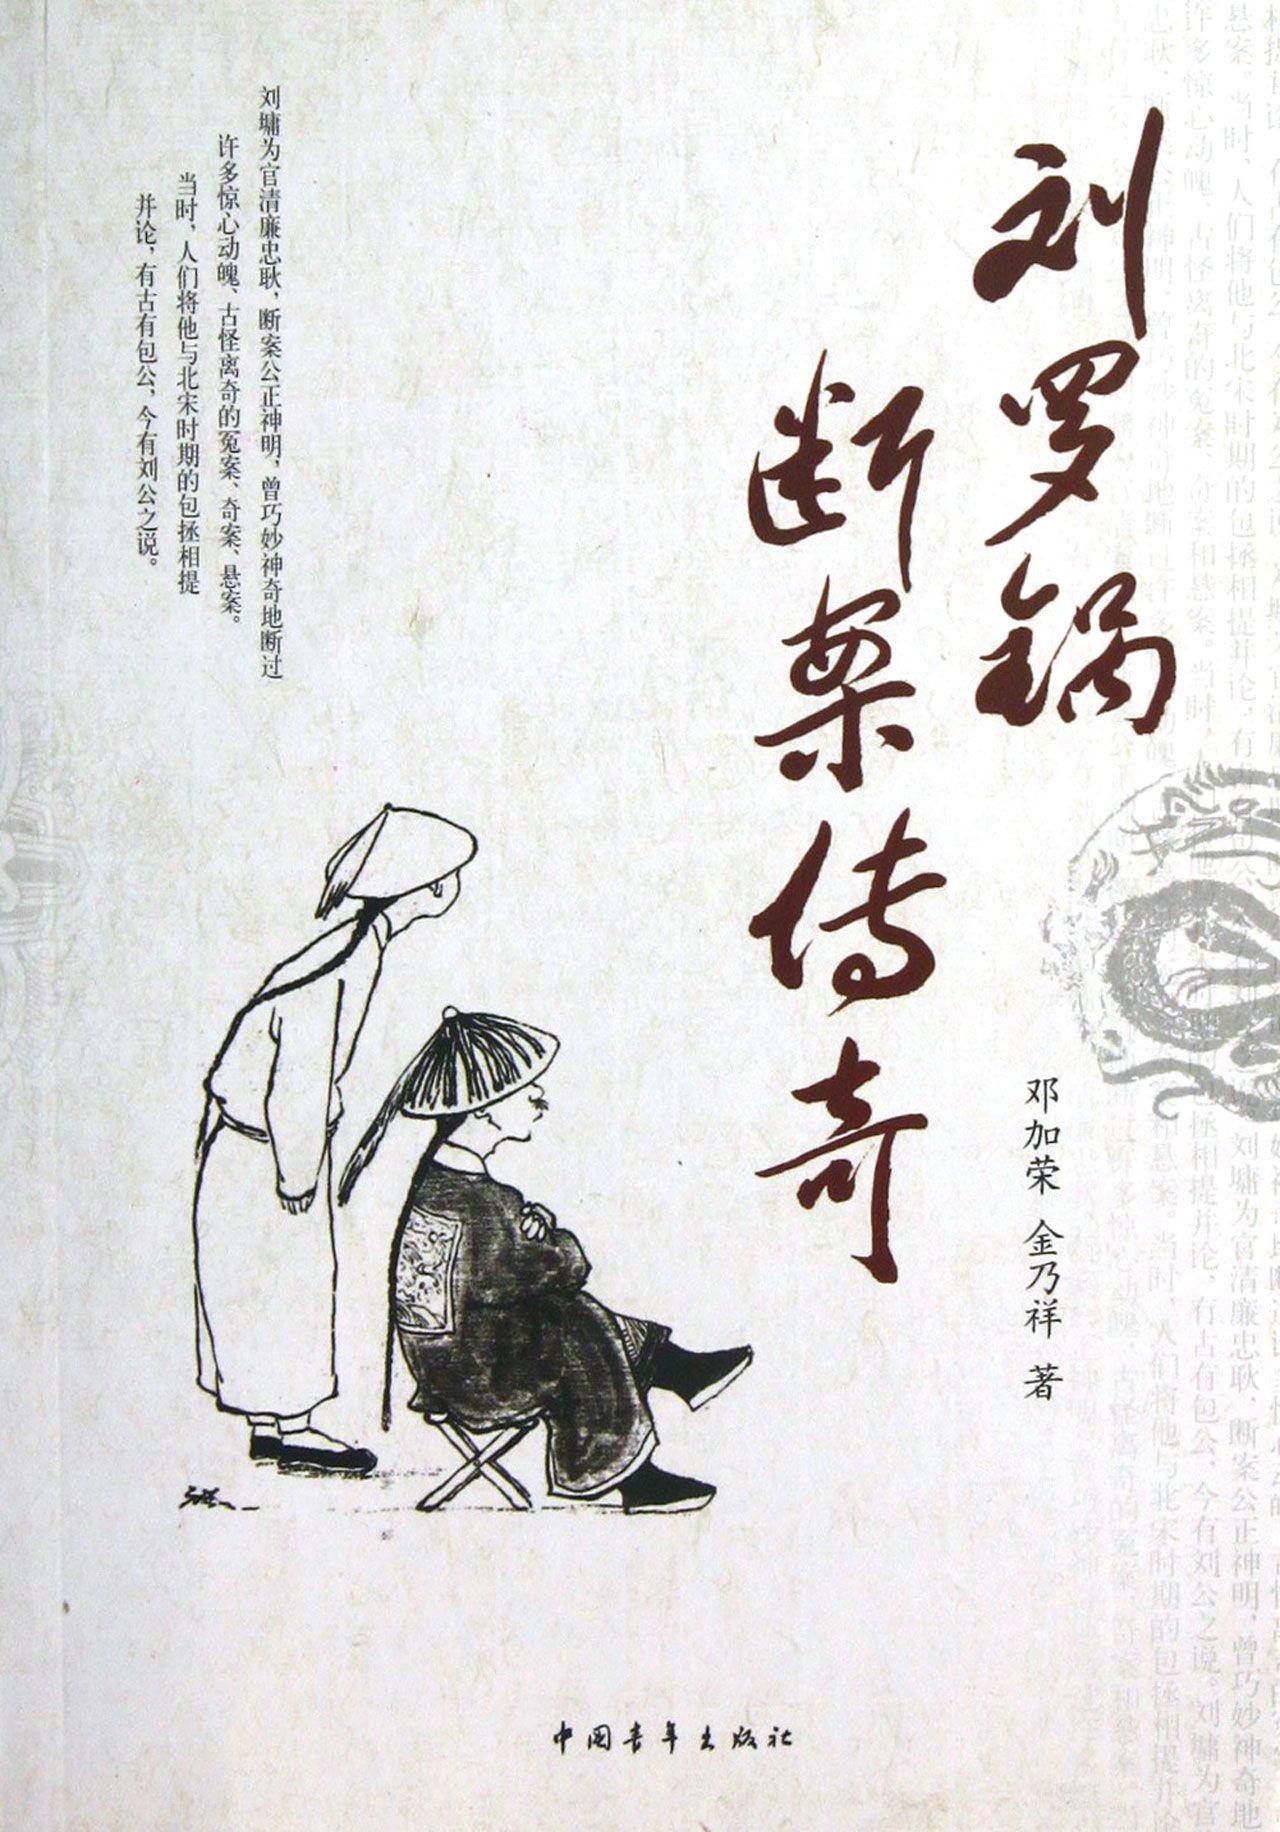 刘罗锅
断案传奇
邓加荣 金乃祥 著
刘墉为官清廉忠耿，断案公正神明，曾巧妙神奇地断过
许多惊心动魄、古怪离奇的冤案、奇案、悬案。
当时，人们将他与北宋时期的包拯相提
并论，有古有包公，今有刘公之说。
中国青年出版社